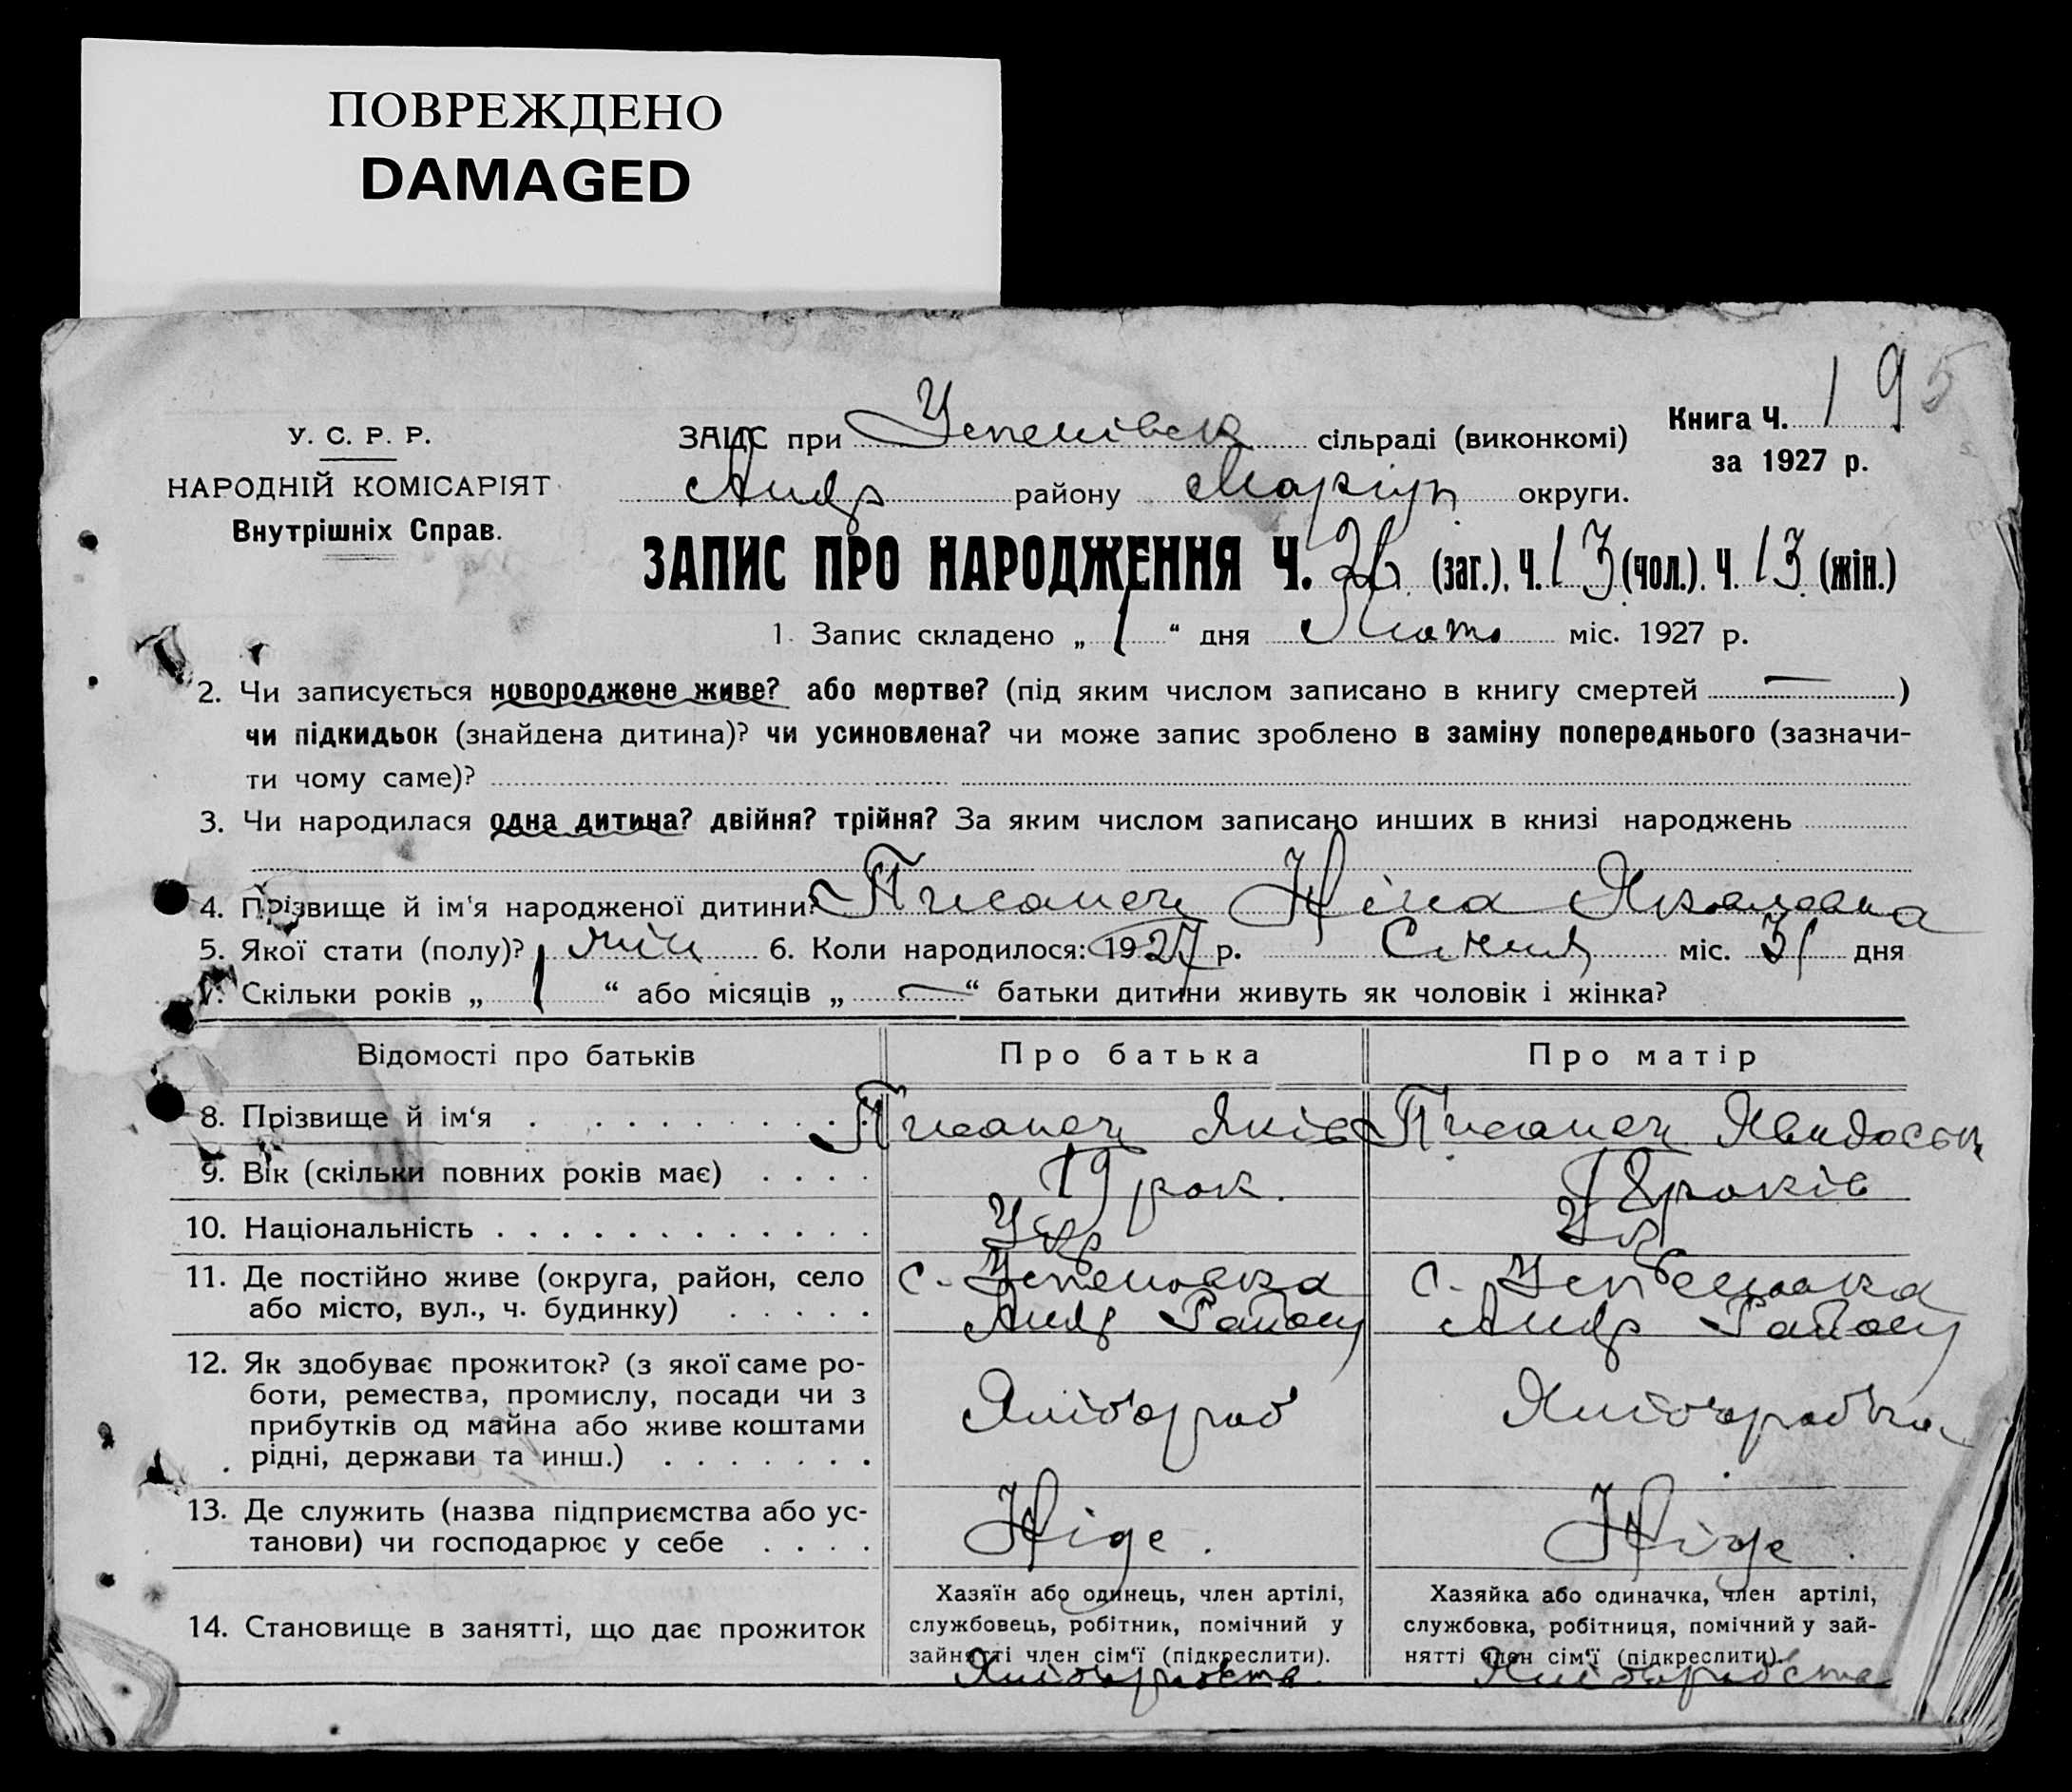 ПОВРЕЖДЕНО
DAMAGED
195
Книга Ч. 1
за 1927 р.
У. С. Р. Р.
НАРОДНІЙ КОМІСАРІЯТ
Внутрішніх Справ.
ЗАЦС при Успенівск сільраді (виконкомі)
Андр району Маріуп округи.
ЗАПИС ПРО НАРОДЖЕННЯ Ч. 26 (заг.). Ч. 13 (чол.). Ч. 13 (жін.)
1. Запис складено „ 1 “ дня Люто міс. 1927 р.
2. Чи записується новороджене живе? або мертве? (під яким числом записано в книгу смертей —)
чи підкидьок (знайдена дитина)? чи усиновлена? чи може запис зроблено в заміну попереднього (зазначи-
ти чому саме)?
3. Чи народилася одна дитина? двійня? трійня? За яким числом записано инших в книзі народжень
4. Прізвище й ім'я народженої дитини? Писанец Ніна Яковлевна
5. Якої стати (полу)? жін 6. Коли народилося: 1927 р. Січня міс. 31 дня
7. Скільки років „ 1 “ або місяців „ — “ батьки дитини живуть як чоловік і жінка?
Відомості про батьків Про батька Про матір
8. Прізвище й ім'я Писанец Яків Писанец Явдось
9. Вік (скільки повних років має) 19 рок. 18 років
10. Національність Укр Укр
11. Де постійно живе (округа, район, село с. Успеновка с. Успеновка
або місто, вул., ч. будинку) Андр Району Андр Району
12. Як здобуває прожиток? (з якої саме ро-
боти, ремества, промислу, посади чи з Хлібороб Хліборобка
прибутків од майна або живе коштами
рідні, держави та инш.)
13. Де служить (назва підприємства або ус- Ніде. Ніде.
танови) чи господарює у себе
Хазяїн або одинець, член артілі, Хазяйка або одиначка, член артілі,
14. Становище в занятті, що дає прожиток службовець, робітник, помічний у службовка, робітниця, помічний у зай-
зайнятті член сім'ї (підкреслити). нятті член сім'ї (підкреслити).
Хліборобств Хліборобство